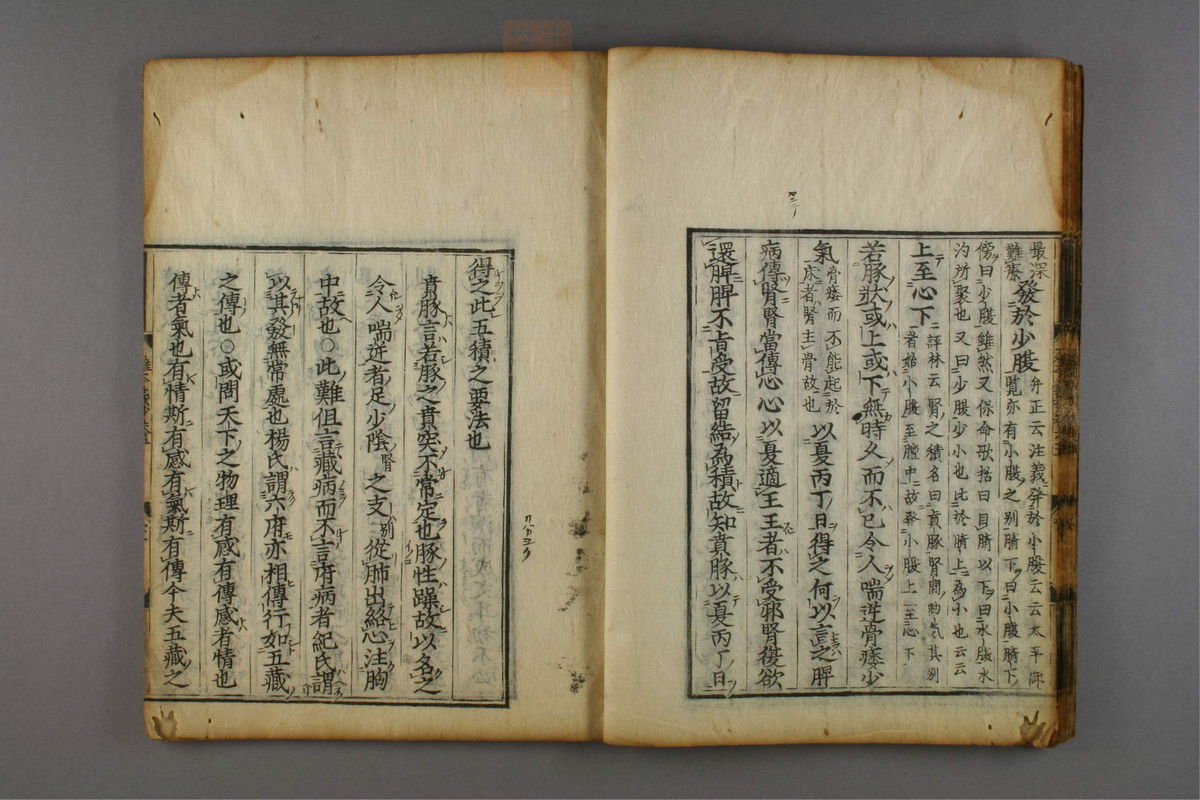 最深
難療
發於少腹
弁正云注義發於小腹云云太平
覽亦有小腹之别臍下曰小腹臍下
傍曰少腹雖然又保命歌括曰目臍以下曰水腹水
汋所聚也又曰少腹少小也此於臍上為小也云云
上至心下
評林云腎之積名曰賁豚腎間的氣其别
者始小腹至膻中故發小腹上至心下
若豚狀或上或下無時久而不已令人喘逆骨痿少
氣
骨痿而不能起於
床者腎主骨故也
以夏丙丁日得之何以言之脾
病傳腎腎當傳心心以夏適王王者不受邪腎復欲
還脾脾不肯受故留結為積故知賁豚以夏丙丁日
得之此五積之要法也
賁豚言若豚之賁突不常定也豚性躁故以名之
令人喘逆者足少陰腎之支别從肺出絡心注胸
中故也○此難但言藏病而不言府病者紀氏謂
以其發無常處也楊氏謂六府亦相傳行如五藏
之傳也○或問天下之物理有感有傳感者情也
傳者氣也有情斯有感有氣斯有傳今夫五藏之